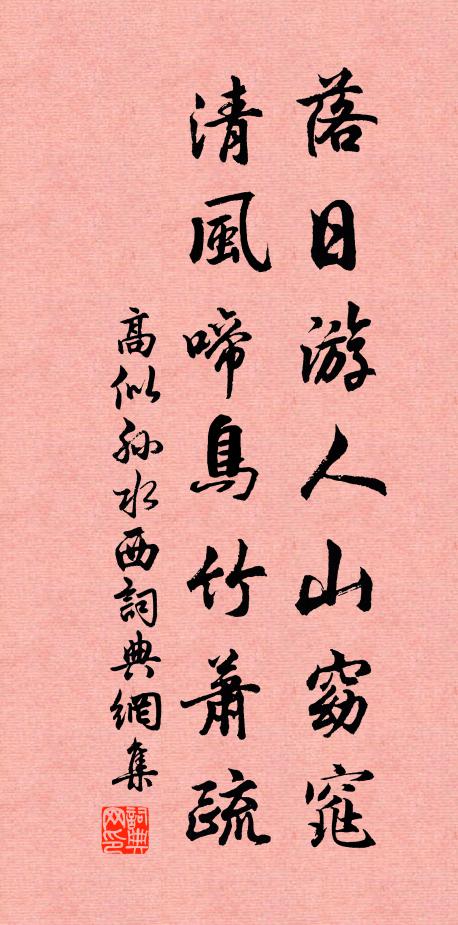 落日游人山窈窕
清風啼鳥竹蕭疏
高似孫水西詞典網集
詞典網印